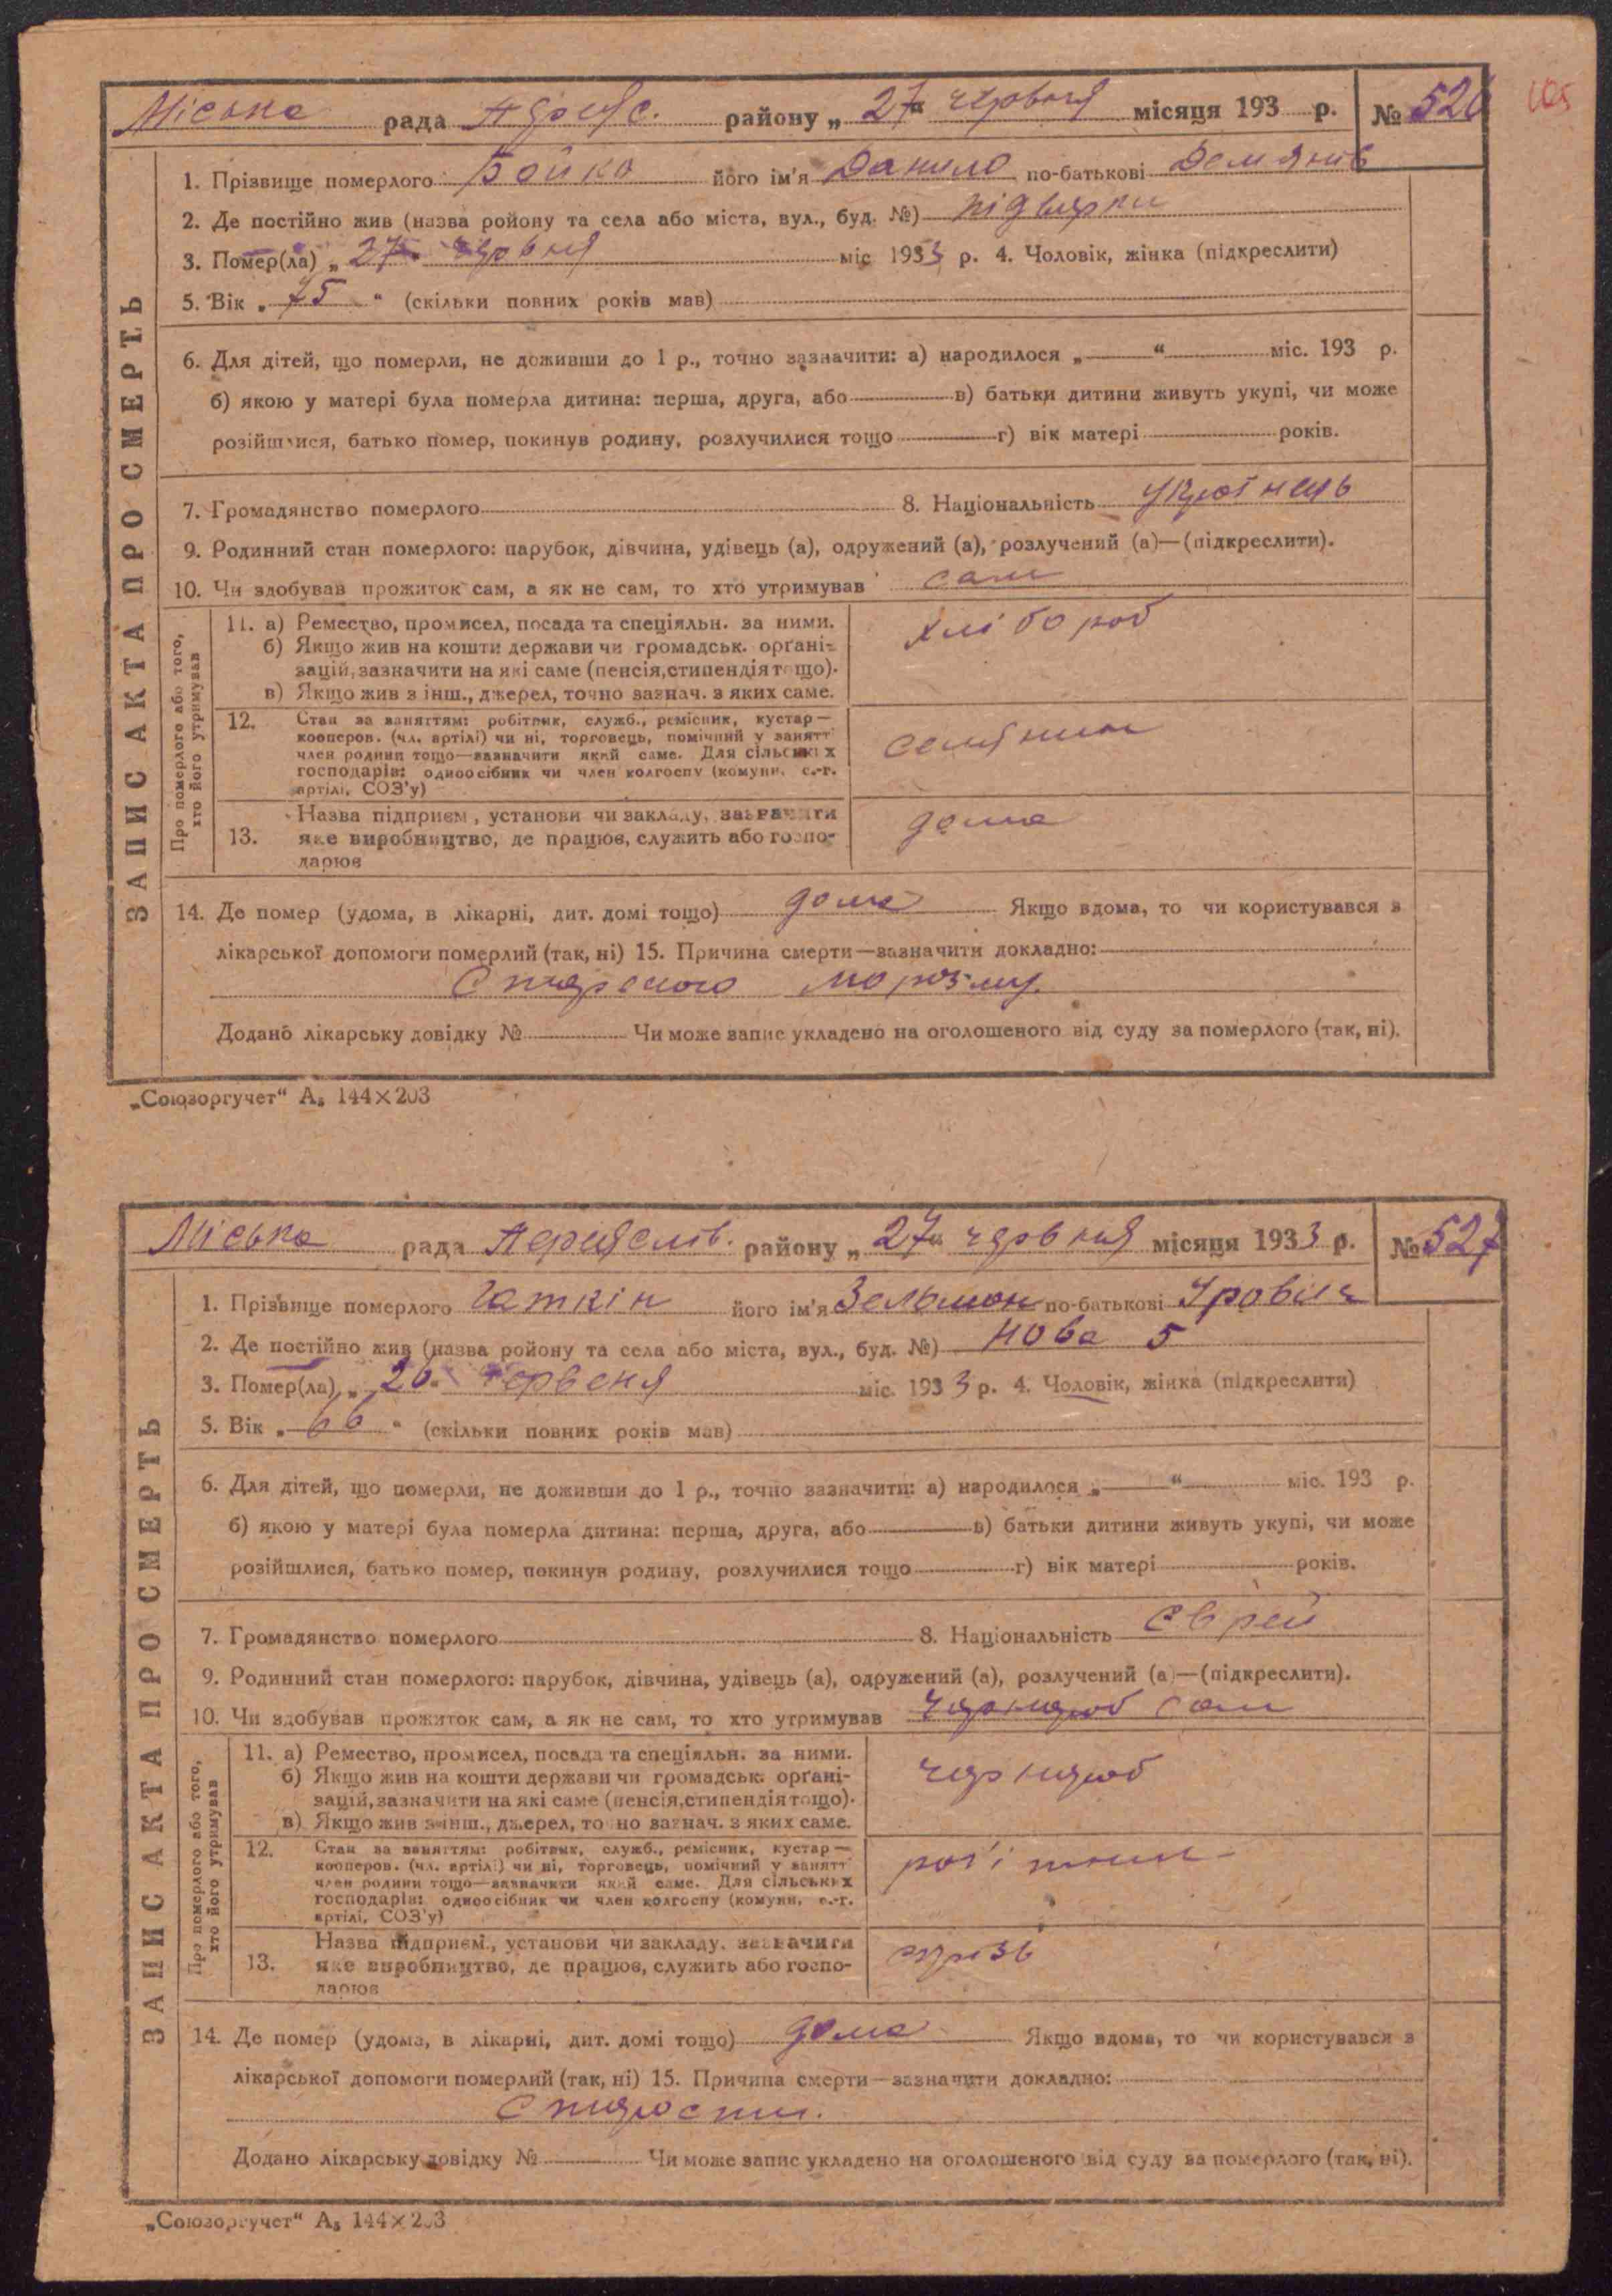 Міська рада Аереяс. району „ 27 " червня місяця 193 р. № 526 105
1. Прізвище померлого Бойко його ім'я Данило по-батькові Демянів
2. Де постійно жив (назва ройону та села або міста, вул., буд. №) підварки
3. Помер(ла) „ 27 " червня міс 1933 р. 4. Чоловік, жінка (підкреслити)
5. Вік „ 75 " (скільки повних років мав)
6. Для дітей, що померли, не доживши до 1 р., точно зазначити: а) народилося „ “ міс. 193 р.
б) якою у матері була померла дитина: перша, друга, або в) батьки дитини живуть укупі, чи може
розійшлися, батько помер, покинув родину, розлучилися тощо г) вік матері років.
7. Громадянство померлого 8. Національність Українець
9. Родинний стан померлого: парубок, дівчина, удівець (а), одружений (а), розлучений (а)—(підкреслити).
10. Чи здобував прожиток сам, а як не сам, то хто утримував сам
ЗАПИС АКТА ПРО СМЕРТЬ
Про померлого або того,
хто його утримував
11. а) Ремество, промисел, посада та спеціяльн. за ними. хлібороб
б) Якщо жив на кошти держави чи громадськ. органі-
зацій, зазначити на які саме (пенсія, стипендія тощо).
в) Якщо жив з інш., джерел, точно зазнач. з яких саме.
12. Стан за заняттям: робітник, служб., ремісник, кустар—
кооперов. (чл. артілі) чи ні, торговець, помічний у занятт
член родини тощо—зазначити який саме. Для сільських
господарів: одноосібник чи член колгоспу (комуни, с.-г.
артілі, СОЗ'у)
селянин
Назва підприєм., установи чи закладу, зазначити
13. яке виробництво, де працює, служить або госпо-
дарює
дома
14. Де помер (удома, в лікарні, дит. домі тощо) дома Якщо вдома, то чи користувався з
лікарської допомоги померлий (так, ні) 15. Причина смерти—зазначити докладно:
Старечого моразму.
Додано лікарську довідку № Чи може запис укладено на оголошеного від суду за померлого (так, ні).
„Союзоргучет“ А₅ 144×203
Міська рада Переяслів. району „ 27 " червня місяця 1933 р. № 527
1. Прізвище померлого Гаткін його ім'я Зельман по-батькові
2. Де постійно жив (назва ройону та села або міста, вул., буд. №) Нова 5
3. Помер(ла) „ 26 " червеня міс. 1933 р. 4. Чоловік, жінка (підкреслити)
5. Вік „ 66 " (скільки повних років мав)
6. Для дітей, що померли, не доживши до 1 р., точно зазначити: а) народилося „ “ міс. 193 р.
б) якою у матері була померла дитина: перша, друга, або в) батьки дитини живуть укупі, чи може
розійшлися, батько помер, покинув родину, розлучилися тощо г) вік матері років.
7. Громадянство померлого 8. Національність Єврей
9. Родинний стан померлого: парубок, дівчина, удівець (а), одружений (а), розлучений (а)—(підкреслити).
10. Чи здобував прожиток сам, а як не сам, то хто утримував чорнороб сам
ЗАПИС АКТА ПРО СМЕРТЬ
Про померлого або того,
хто його утримував
11. а) Ремество, промисел, посада та спеціяльн. за ними. чорнороб
б) Якщо жив на кошти держави чи громадськ. органі-
зацій, зазначити на які саме (пенсія, стипендія тощо).
в) Якщо жив з інш., джерел, точно зазнач. з яких саме.
12. Стан за заняттям: робітник, служб., ремісник, кустар—
кооперов. (чл. артілі) чи ні, торговець, помічний у занятт
член родини тощо—зазначити який саме. Для сільських
господарів: одноосібник чи член колгоспу (комуни, с.-г.
артілі, СОЗ'у)
робітник
Назва підприєм., установи чи закладу, зазначити
13. яке виробництво, де працює, служить або госпо-
дарює
14. Де помер (удома, в лікарні, дит. домі тощо) дома Якщо вдома, то чи користувався з
лікарської допомоги померлий (так, ні) 15. Причина смерти—зазначити докладно:
Старости.
Додано лікарську довідку № Чи може запис укладено на оголошеного від суду за померлого (так, ні).
„Союзоргучет“ А₅ 144×203